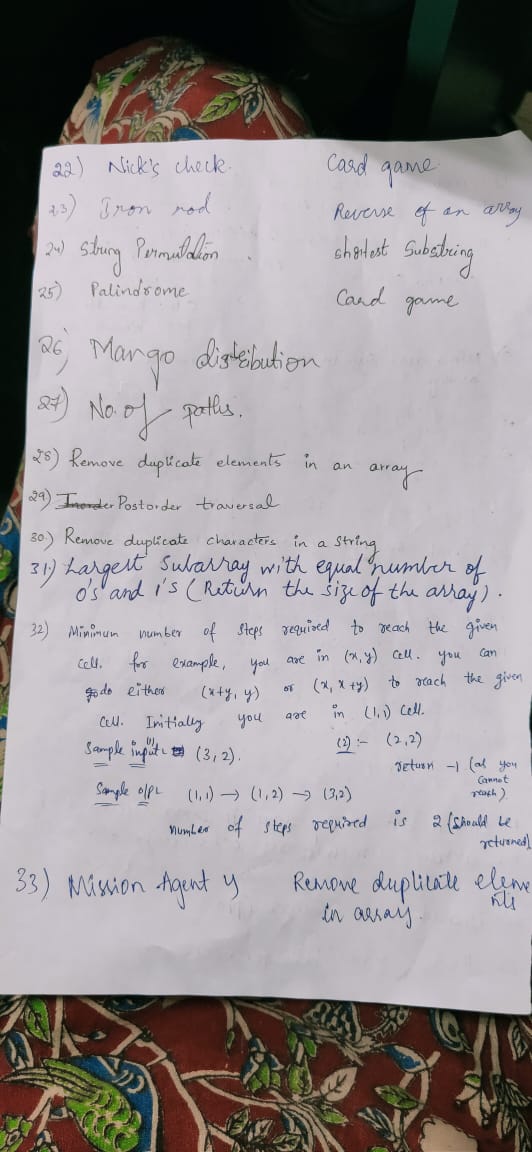 22) Nick's check. Card game
23) Iron rod Reverse of an array
24) String Permutation shortest Substring
25) Palindrome Card game
26) Mango distribution
27) No. of paths.
28) Remove duplicate elements in an array
29) Inorder Postorder traversal
30.) Remove duplicate characters in a string
31) Largest subarray with equal number of
0's and 1's (Return the size of the array).
32) Minimum number of steps required to reach the given
cell. for example, you are in (x,y) cell. you can
go do either (x+y, y) or (x, x+y) to reach the given
cell. Initially you are in (1,1) cell.
Sample input (1) (3,2). (2) :- (2,2)
return -1 (as you cannot reach)
Sample o/p (1,1) → (1,2) → (3,2)
number of steps required is 2 (should be returned)
33) Mission Agent y Remove duplicate elements
in array.